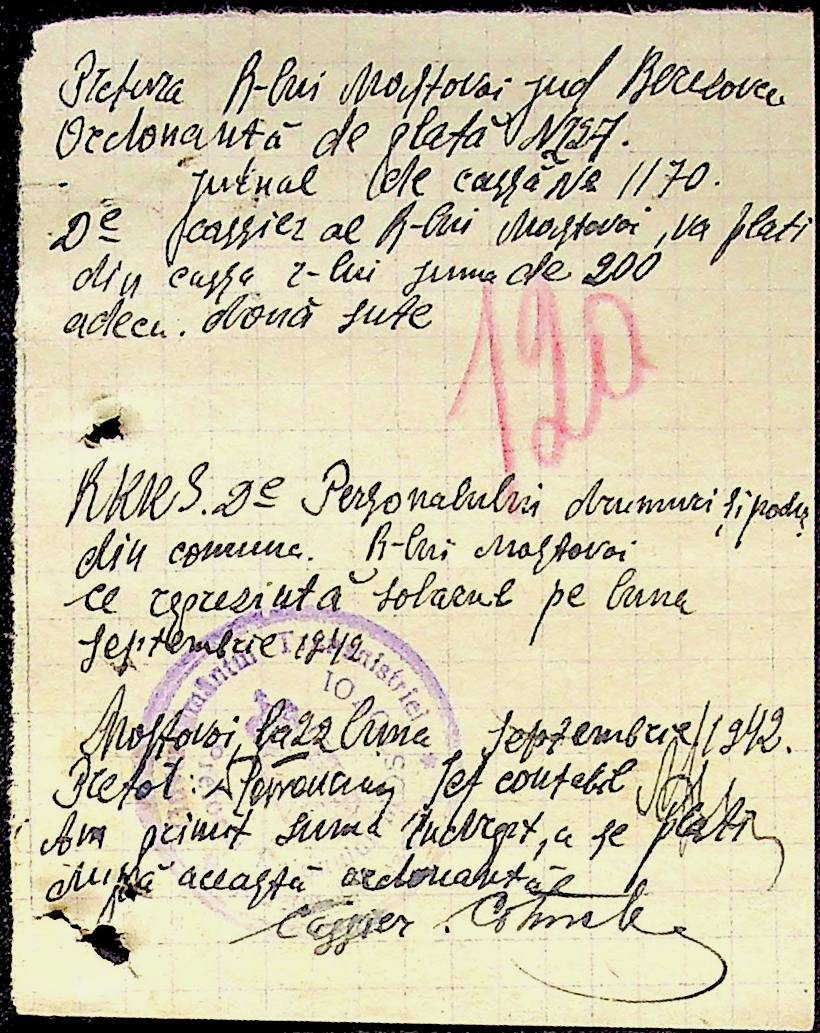 Pretura R-lui Mostovoi jud Berezovca
Ordonantă de plată N 727.
jurnal de cassă № 1170.
De cassier al R-lui Mostovoi, va plati
din cassa r-lui suma de 200
adeca. două sute
120
RKKS. De Personalului drumuri și poduș
din comuna. R-lui Mostovoi
ce reprezintă solarul pe luna
septembrie 1942
Mostovoi, la 22 luna septembrie 1942.
Pretor: șef contabil
Am primit suma indrept, a se plati
după această ordonantă
Cassier.